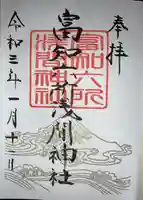 奉拝
富知六所浅間神社
富知六所
浅間神社
令和三年一月十二日